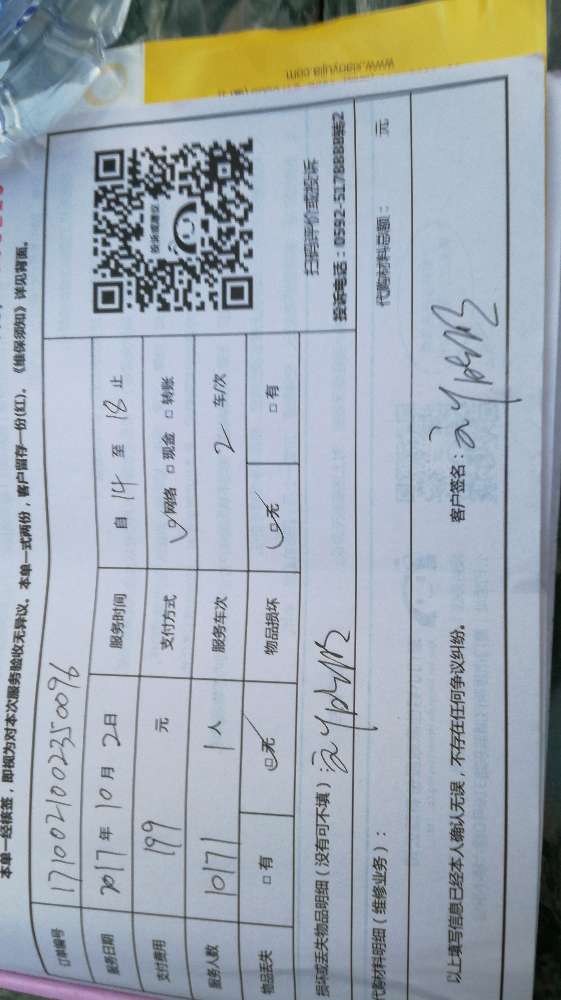 www.xiaoyujia.com
本单一经核签，即视为对本次服务验收无异议。本单一式两份，客户留存一份(红)。《维保须知》详见背面。
订单编号 1710021002350096
服务日期 2017年10月2日 服务时间 自 14 至 18 止
支付费用 199 元 支付方式 ☑网络 □现金 □转账
服务人数 10171 1人 服务车次 2 车/次
物品丢失 □有 ☑无 物品损坏 ☑无 □有
投诉或建议
扫码评价或投诉
投诉电话：0592-5178888转2
损坏或丢失物品明细（没有可不填）：
代购材料明细（维修业务）： 代购材料总额： 元
以上填写信息已经本人确认无误，不存在任何争议纠纷。 客户签名：